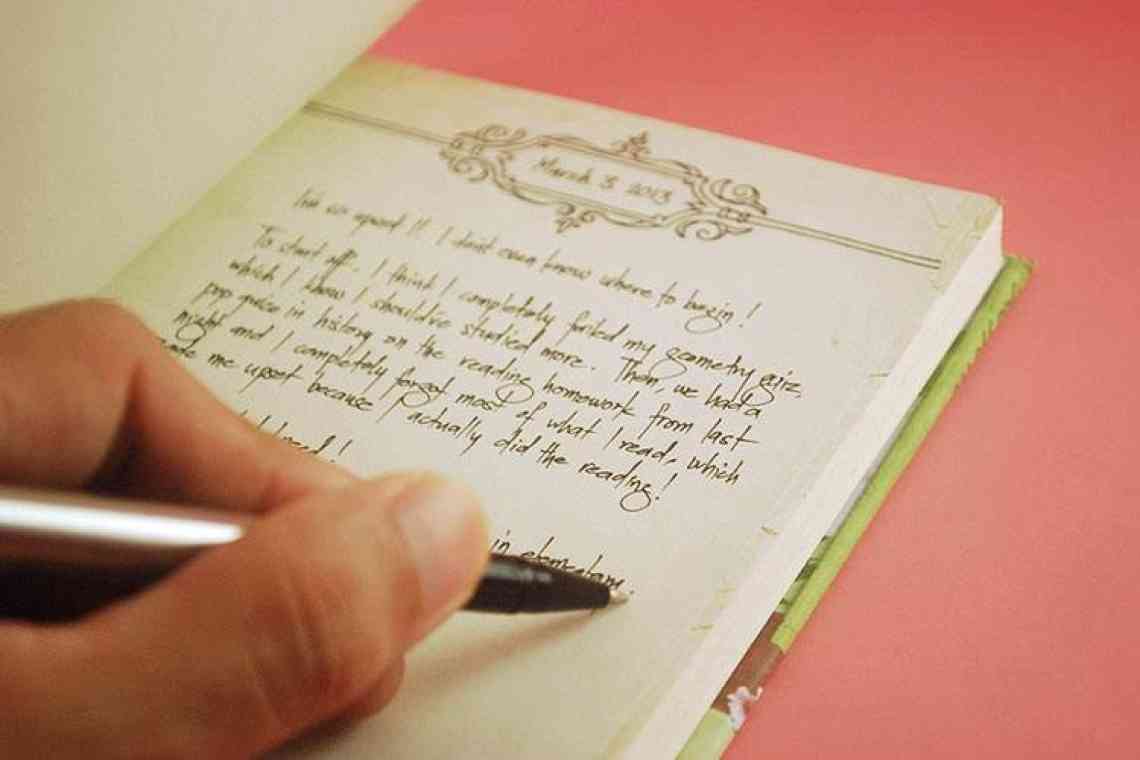 March 3 2013
I'm so upset !! I don't even know where to begin!
To start off, I think I completely failed my geometry quiz,
which I know I should've studied more. Then, we had a
pop quize in history on the reading homework from last
night and I completely forgot most of what I read, which
made me upset because I actually did the reading!
in elementary.